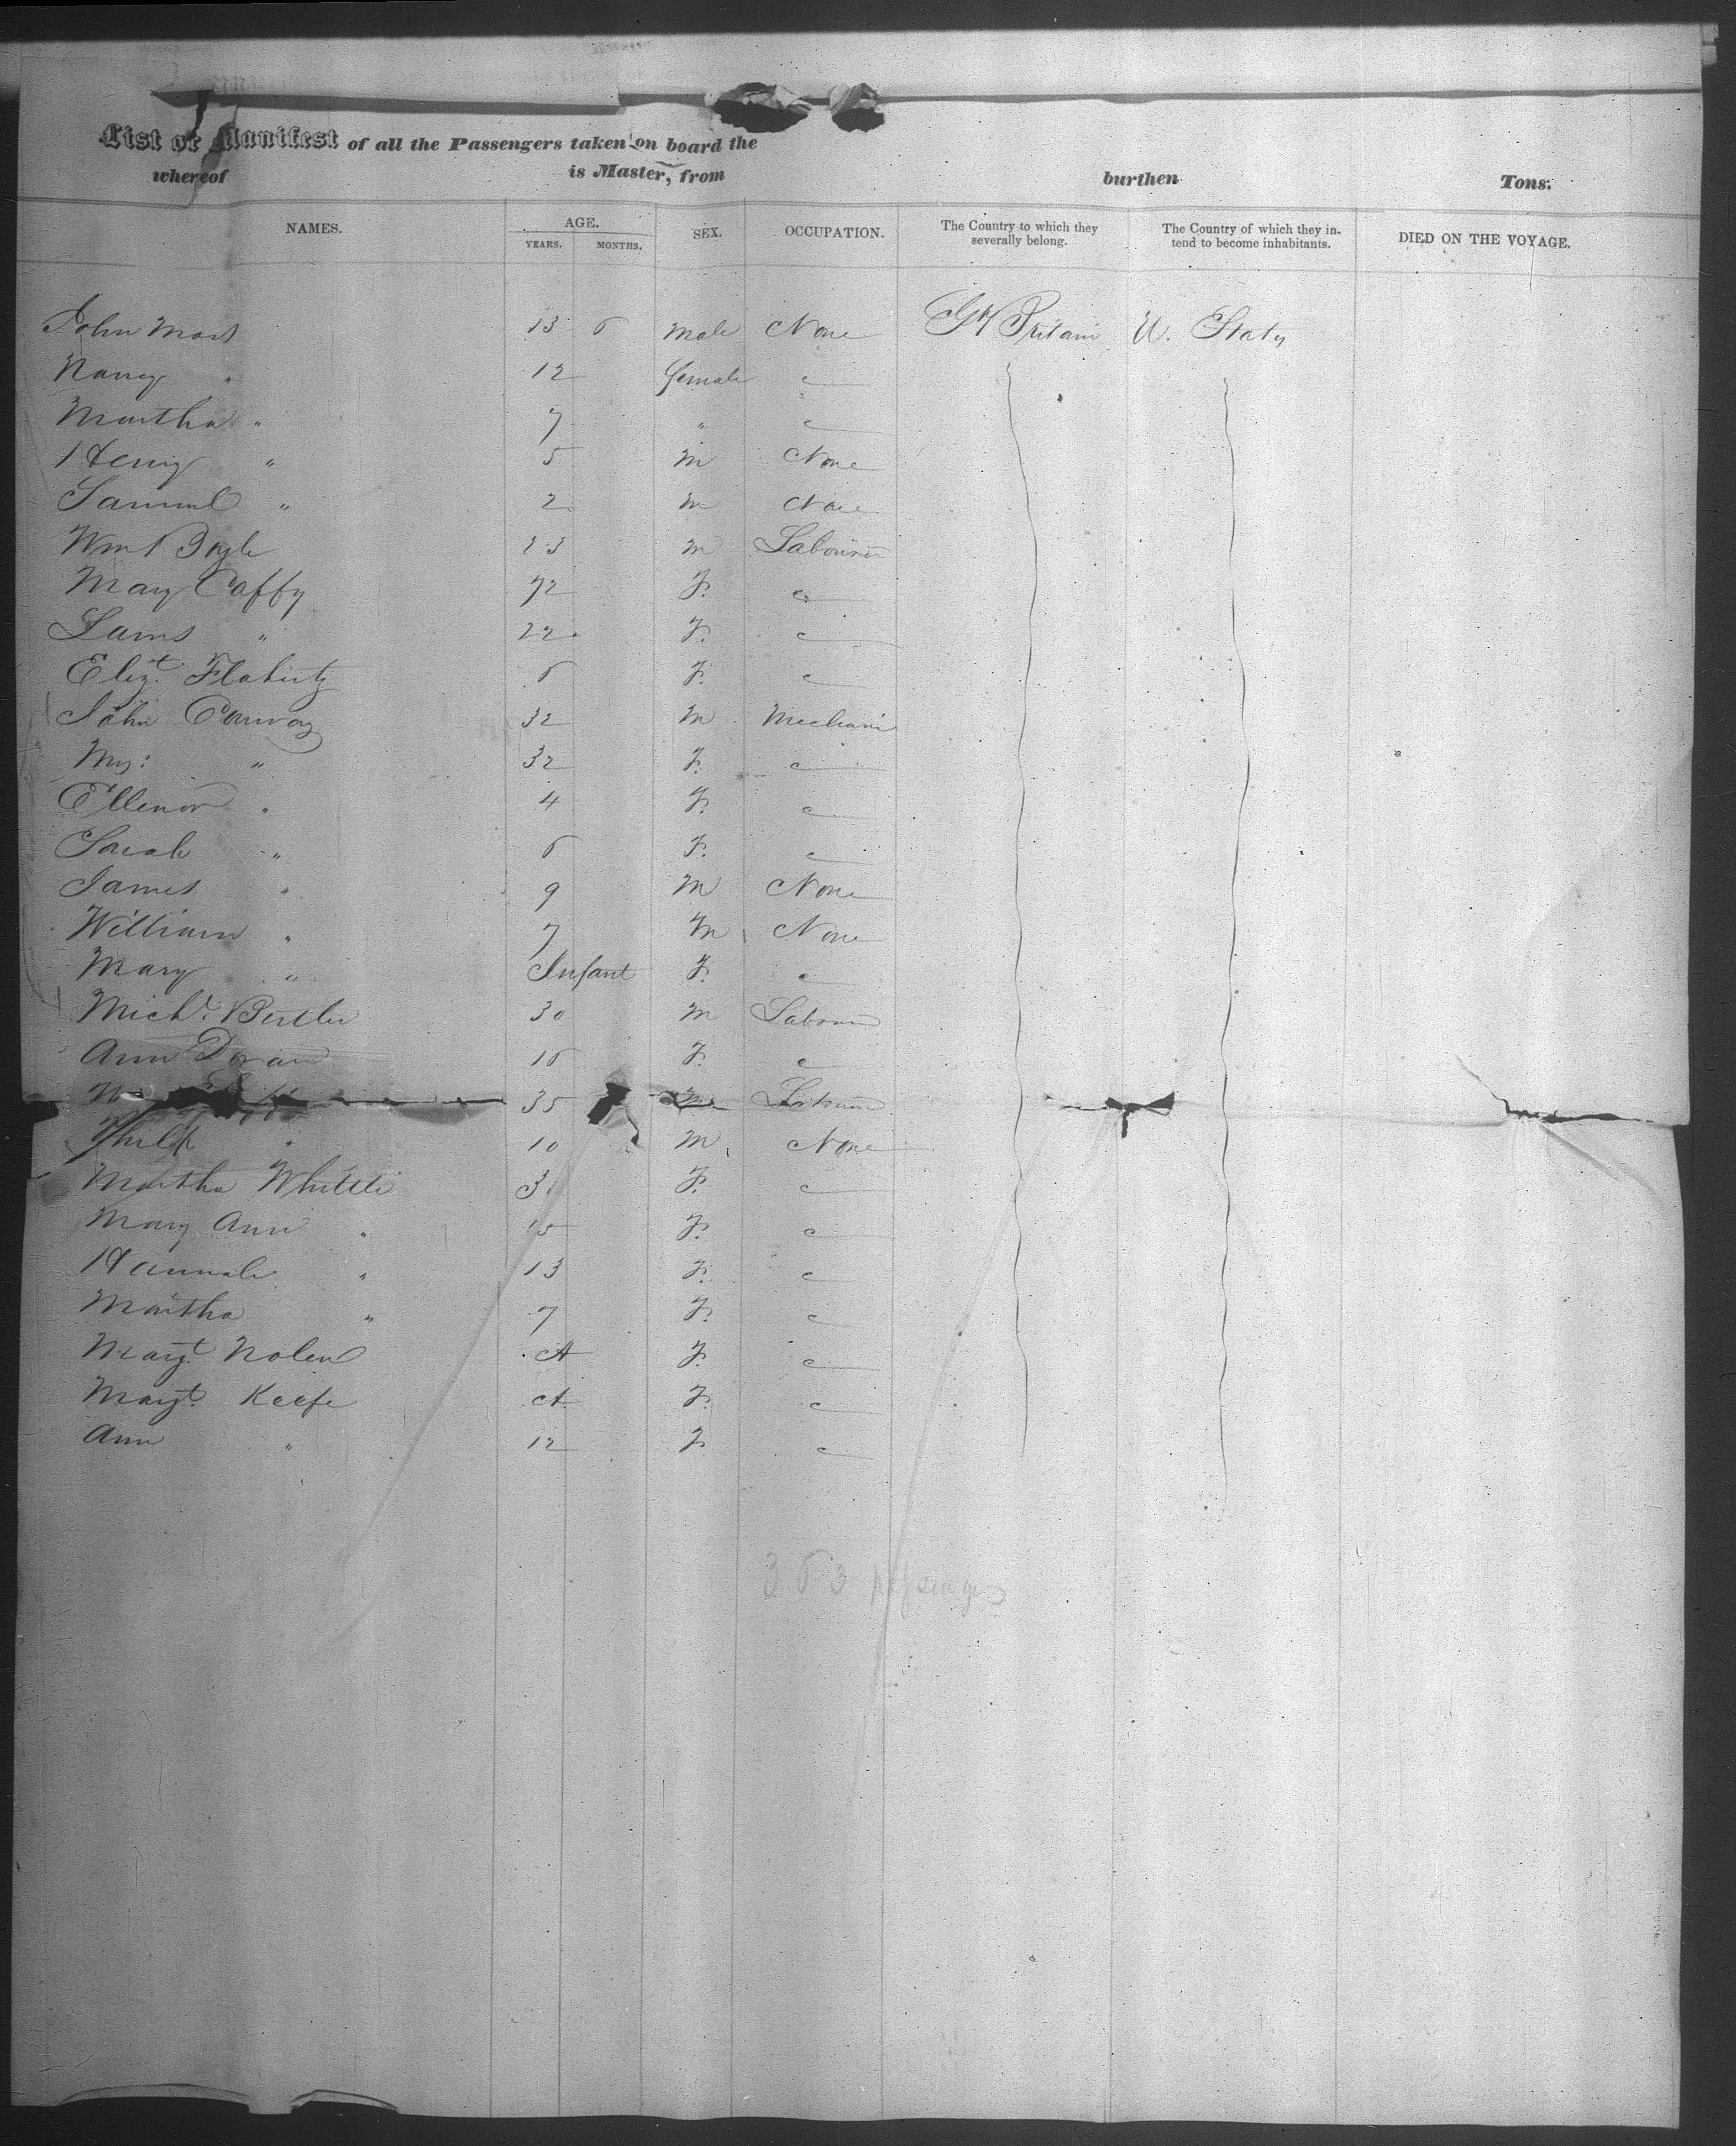 List or Manifest of all the Passengers taken on board the
whereof is Master, from burthen Tons.
NAMES. AGE. SEX. OCCUPATION. The Country to which they severally belong. The Country of which they intend to become inhabitants. DIED ON THE VOYAGE.
YEARS. MONTHS.
John 13 6 Male None Gt Britain U. States
Nancy " 12 female
Martha " 7 "
Henry " 5 m None
Samuel " 2 m None
Wm Boyle 23 m Labourer
Mary Caffy 72 F.
" 22 F.
Elizt. Flaherty 6 F.
John Conway 32 m Mechanic
" 32 F.
Ellenor " 4 F.
Sarah " 6 F.
James " 9 m None
William " 7 m None
Mary " Infant F.
Michl. Butler 30 m Labourer
Ann Doran 16 F.
35 Labourer
Philip " 10 m None
Martha Whittle F.
Mary Ann " 15 F.
Hannah " 13 F.
Martha " 7 F.
Margt. Nolen A F.
Margt. Keefe A F.
Ann " 12 F
363 passengers